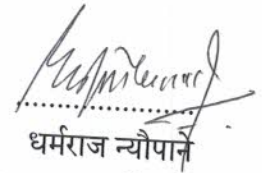 ....................
धर्मराज न्यौपाने